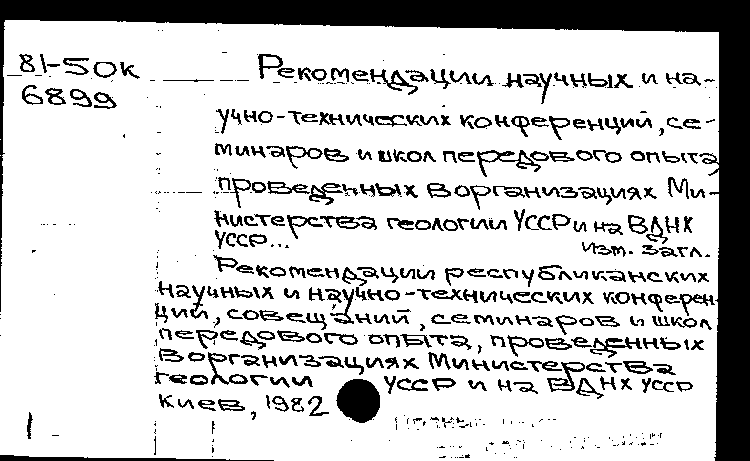 81-50к Рекомендации научных и на-
6899
учно-технических конференций, се-
минаров и школ передового опыта,
проведенных в организациях Ми-
нистерства геологии УССР и на ВДНХ
УССР... Изм. загл.
Рекомендации республиканских
научных и научно-технических конферен-
ций, совещаний, семинаров и школ
передового опыта, проведенных
в организациях Министерства
геологии УССР и на ВДНХ УССР
Киев, 1982
1